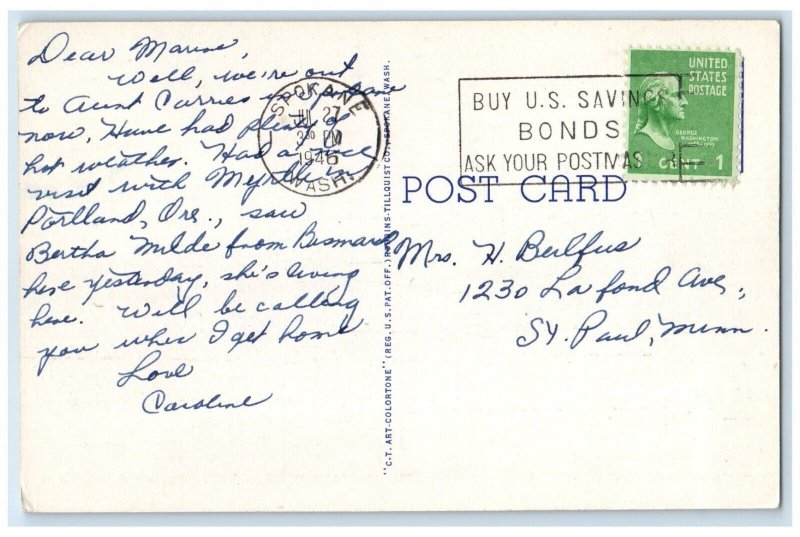 Dear Marine,
Well, we're out
to Aunt Carries in Spokane
now, Have had plenty of
hot weather. Had a nice
visit with Myrtle in
Portland, Ore., saw
Bertha Milde from Bismarck
here yesterday, she's living
here. Will be calling
you when I get home
Love
Caroline
"C.T. ART-COLORTONE" (REG. U.S. PAT. OFF.) ROBBINS-TILLQUIST CO., SPOKANE, WASH.
SPOKANE
JUL 27
3 30 PM
1946
WASH.
BUY U.S. SAVINGS
BONDS
ASK YOUR POSTMAS
UNITED
STATES
POSTAGE
GEORGE
WASHINGTON
CENT 1
POST CARD
Mrs. H. Beilfus
1230 Lafond Ave.,
St. Paul, Minn.